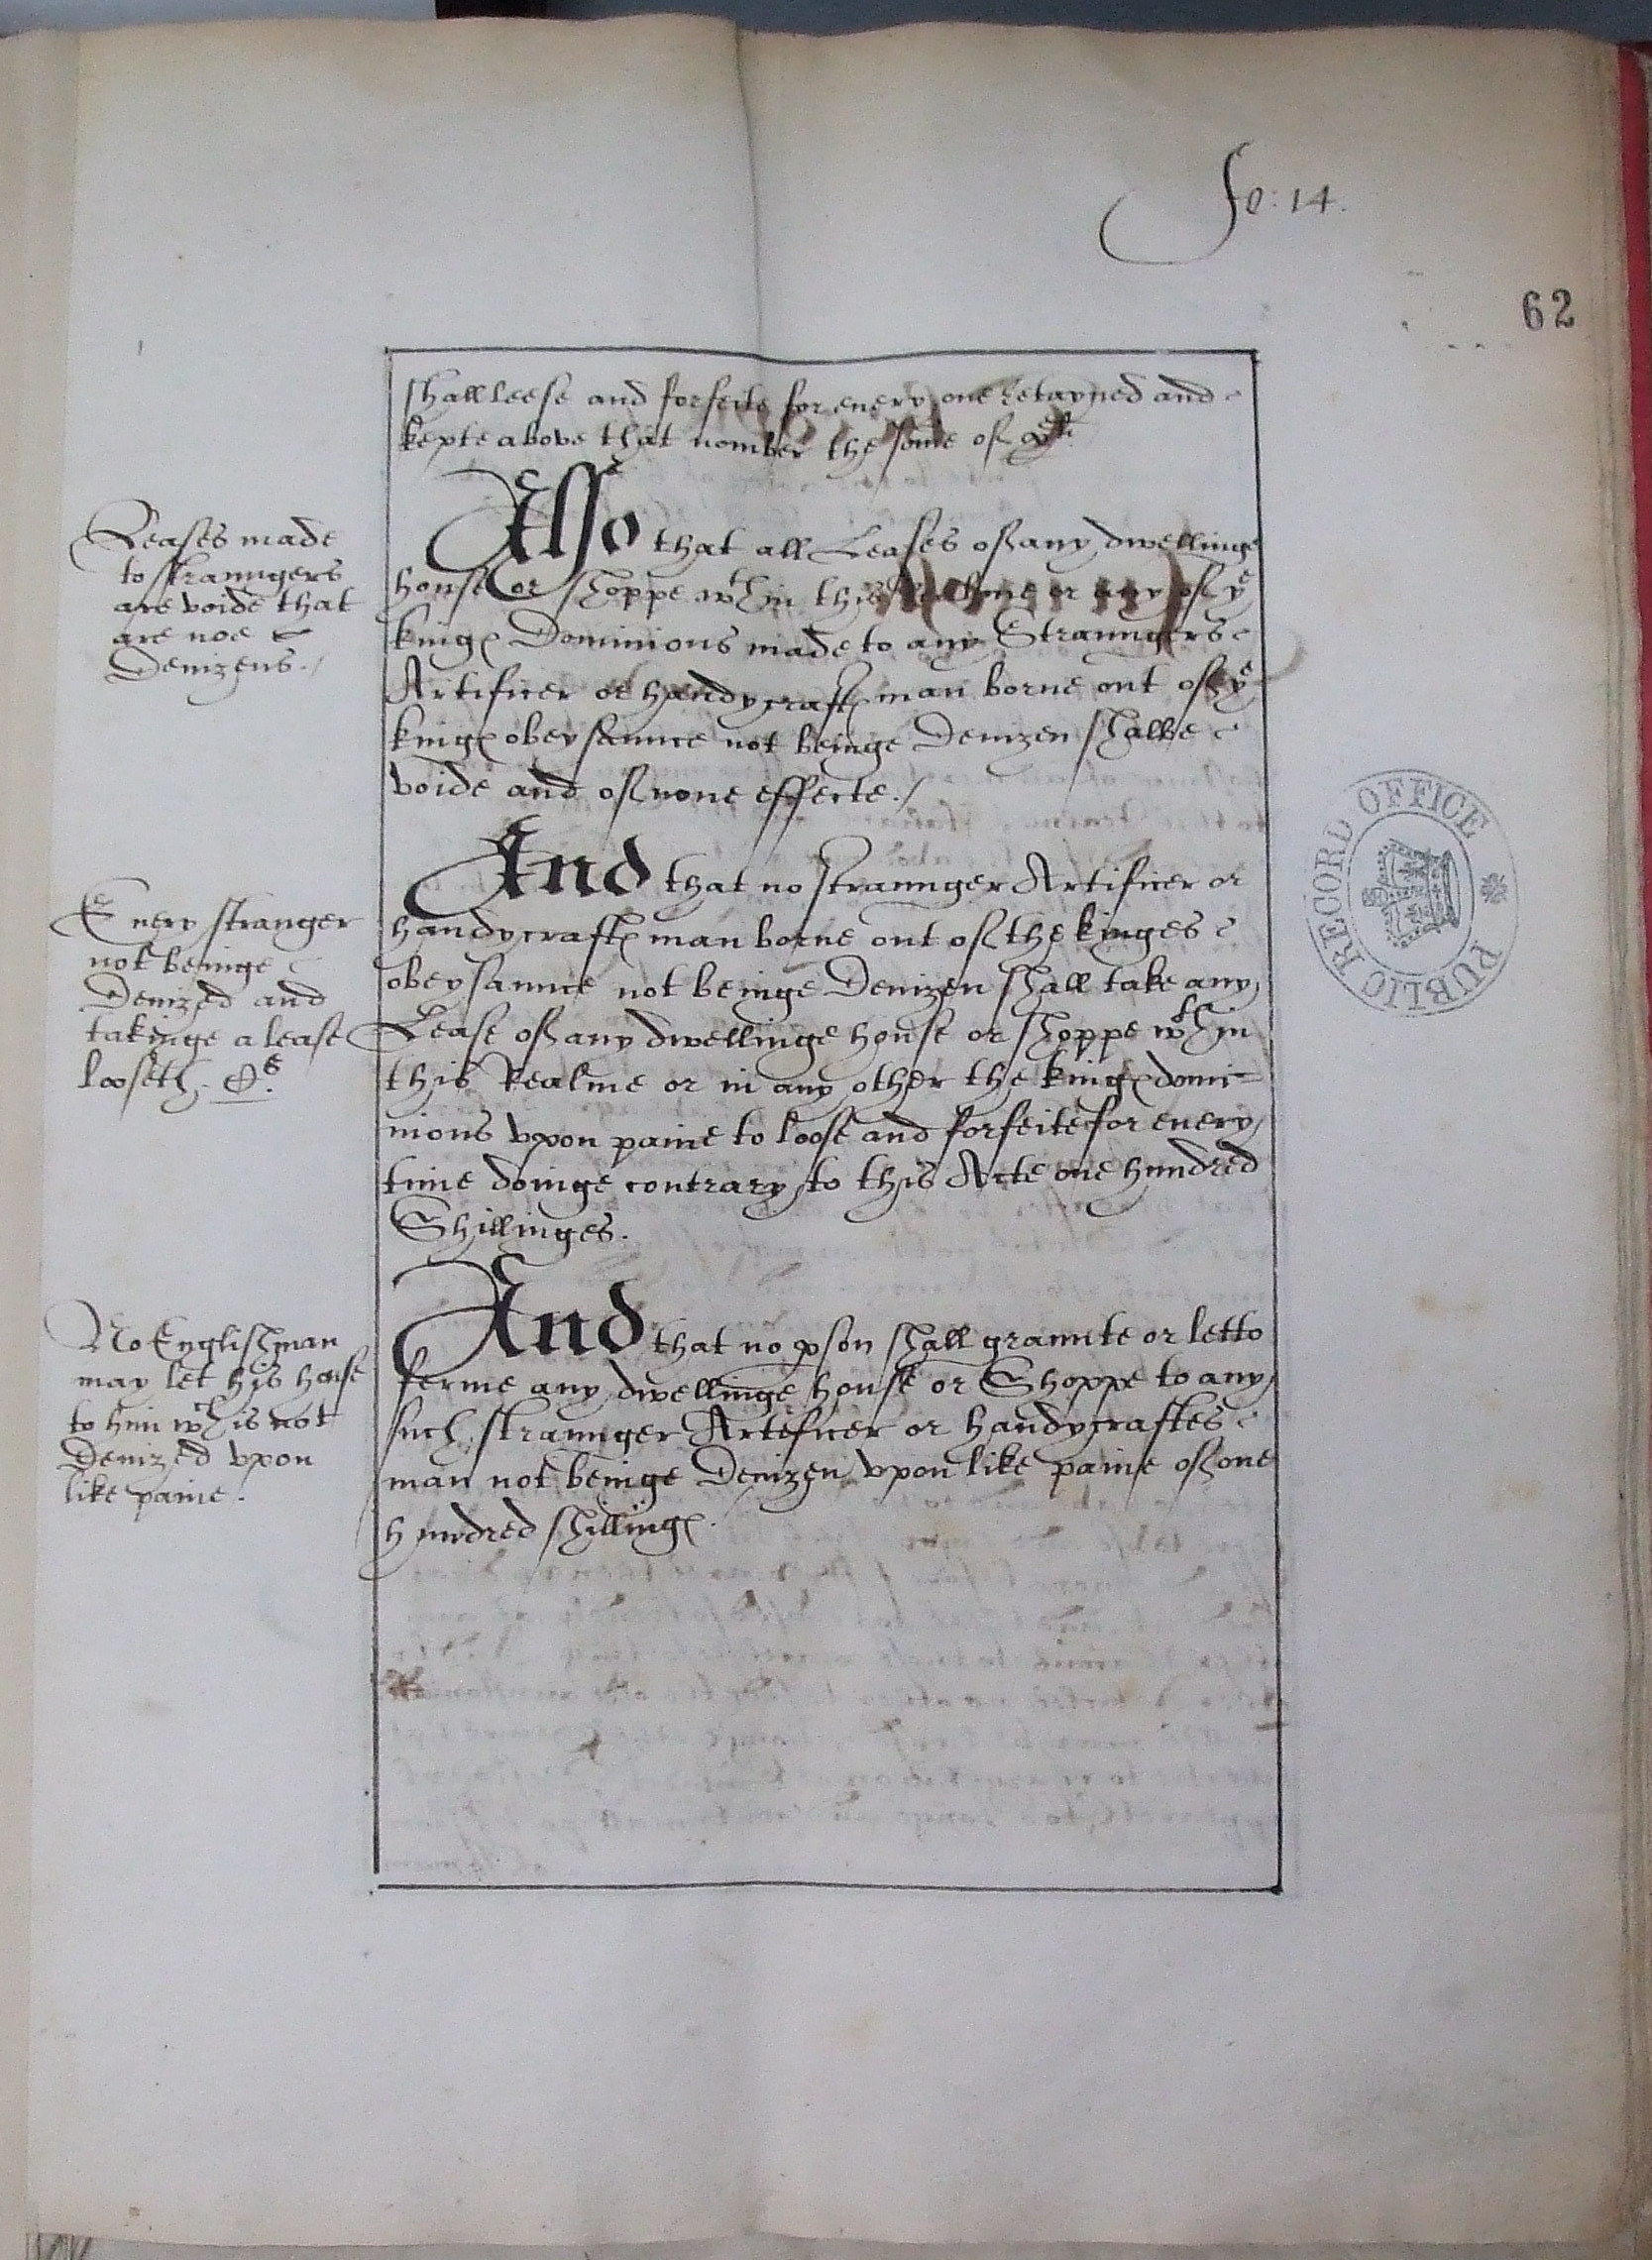 fo: 14.
62
shall leese and forfeite for euery one retayned and
kepte above that nomber the some of x^li.
Leases made
to straungers
are voide that
are noe
Denizens./
Also that all Leases of any dwellinge
house or shoppe w^th in this Realme or any of y^e
kinges Dominions made to any Straungers
Artificer or handycraftes man borne out of y^e
kinges obeysaunce not beinge Denizen shalbe
voide and of none effecte./
Euery stranger
not beinge
Denized and
takinge a lease
looseth. C^s.
And that no straunger Artificer or
handycraftes man borne out of the kinges
obeysaunce not beinge Denizen shall take any
Lease of any dwellinge house or shoppe w^th in
this Realme or in any other the kinges domi=
nions vpon paine to loose and forfeite for euery
time doinge contrary to this Acte one hundred
Shillinges.
No Englishman
may let his house
to him w^ch is not
Denized vpon
like paine.
And that no pson shall graunte or lett to
ferme any dwellinge house or Shoppe to any
such straunger Artificer or handycraftes
man not beinge Denizen vpon like paine of one
hundred shillinges.
PUBLIC RECORD OFFICE